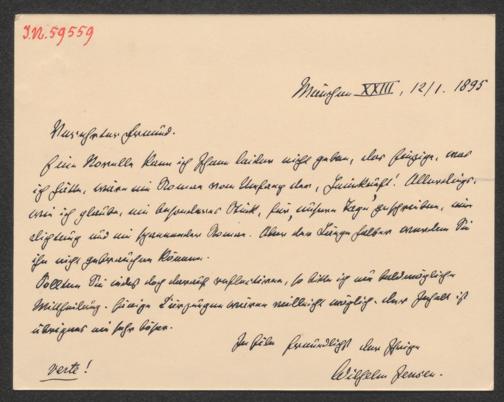 I.N. 59559
München XXIII, 12/1. 1895
Verehrter Freund.
Eine Novelle kann ich Ihnen leider nicht geben, das Einzige, was
ich hätte, wäre ein Roman vom Umfang der
wie ich glaube, ein besonderes Stück, für
und ein spannender Roman. Aber der Länge halber werden Sie
ihn nicht gebrauchen können.
Sollten Sie indeß doch darauf reflectiren, so bitte ich um baldmöglichste
Mittheilung. Einige Kürzungen wären vielleicht möglich, der Inhalt ist
übrigens ein sehr
In Eile freundlichst der Ihrige
verte!
Wilhelm Jensen.